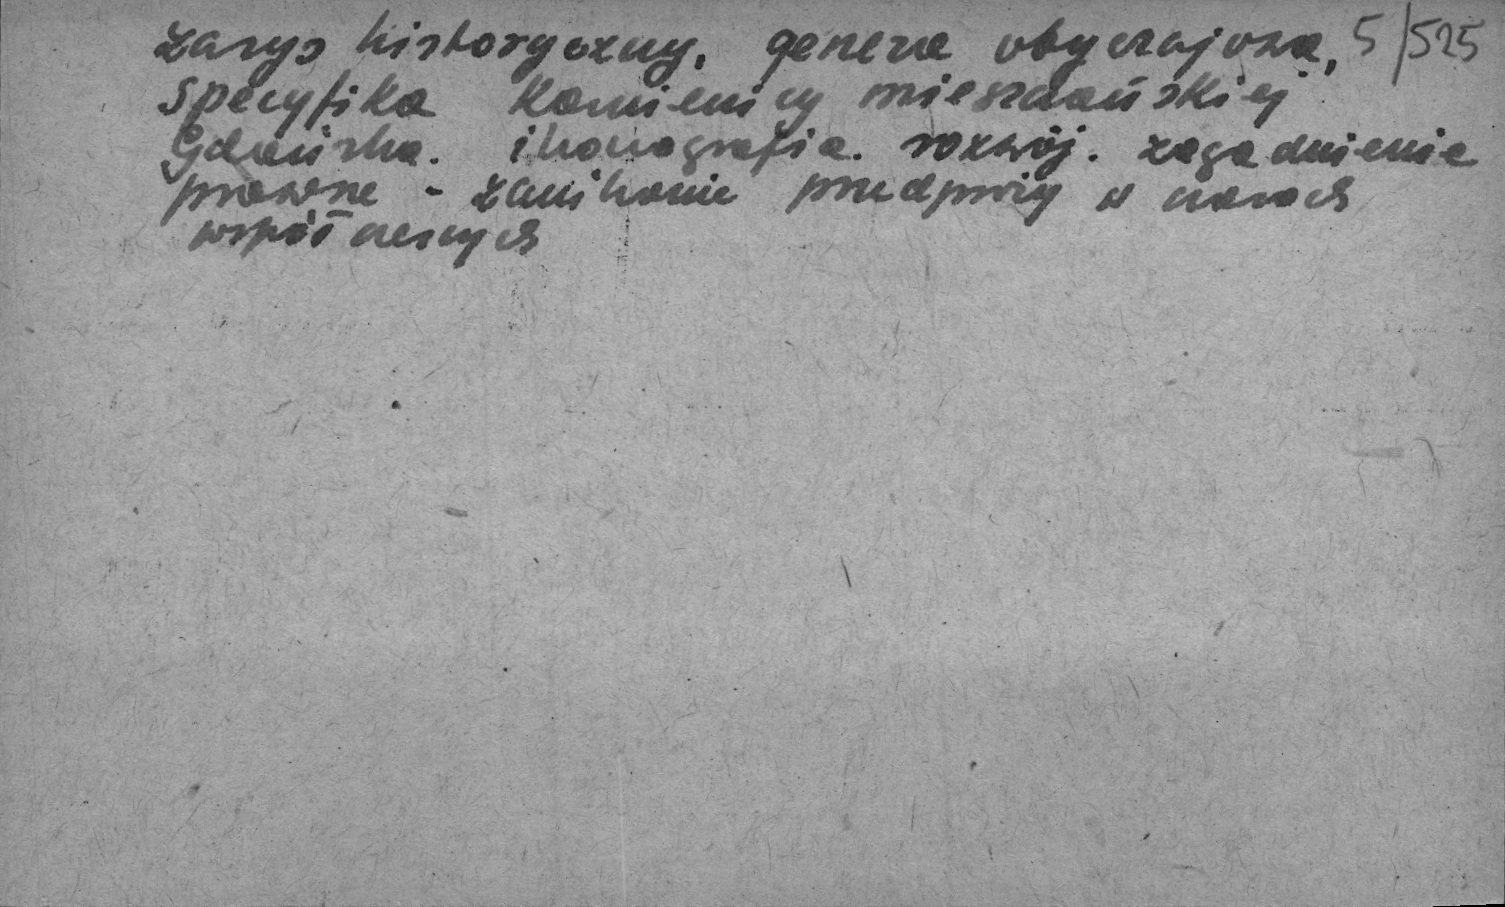 zarys historyczny, geneza obyczajowa, 5/525
specyfika kamienicy mieszczańskiej
Gdańska. ikonografia. rozwój. zagadnienie
prawne - zanikanie przedproży w czasach
współczesnych